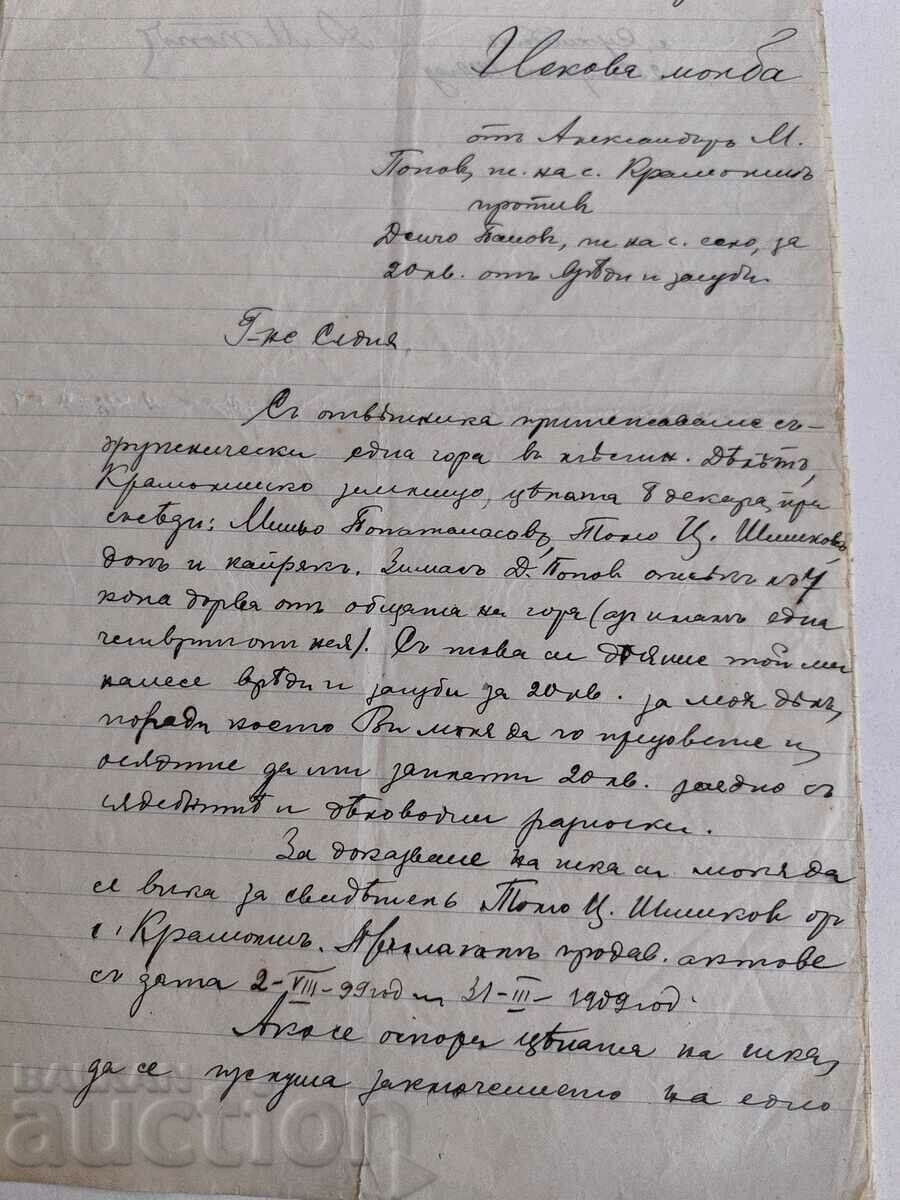 Искова молба
отъ Александъръ М.
Поповъ, ж. на с. Крамолинъ
против
Дочо Попов, ж на с. село, за
20 лв. отъ врѣди и загуби.
Г-не Сѫдия,
Съ отвѣтника притежаваме съ-
дружнически една гора въ мѣстн.
Крамолинско землище, цѣлата 8 декара, при
съсѣди: Миньо Попатанасовъ, Тотю Ц. Шишковъ,
долъ и кайрякъ. Зимасъ Д. Попов отсѣкълъ 4
кола дърва отъ общата ни гора (азъ имамъ една
четвърт от нея). Съ това си дѣяние той ми
нанесе врѣди и загуби за 20 лв. за моя дѣлъ,
поради което Ви моля да го призовете и
осѫдите да ми заплати 20 лв. заедно съ
сѫдебнитѣ и дѣловодни разноски.
За доказване на иска си моля да
се вика за свидѣтель Тотю Ц. Шишков от
с. Крамолинъ. Прилагамъ продав. актове
съ дата 2-VIII-99 год и 31-III-1909 год.
Ако се оспори цѣната на иска,
да се изслуша заключението на едно
БАЛКАН
auction